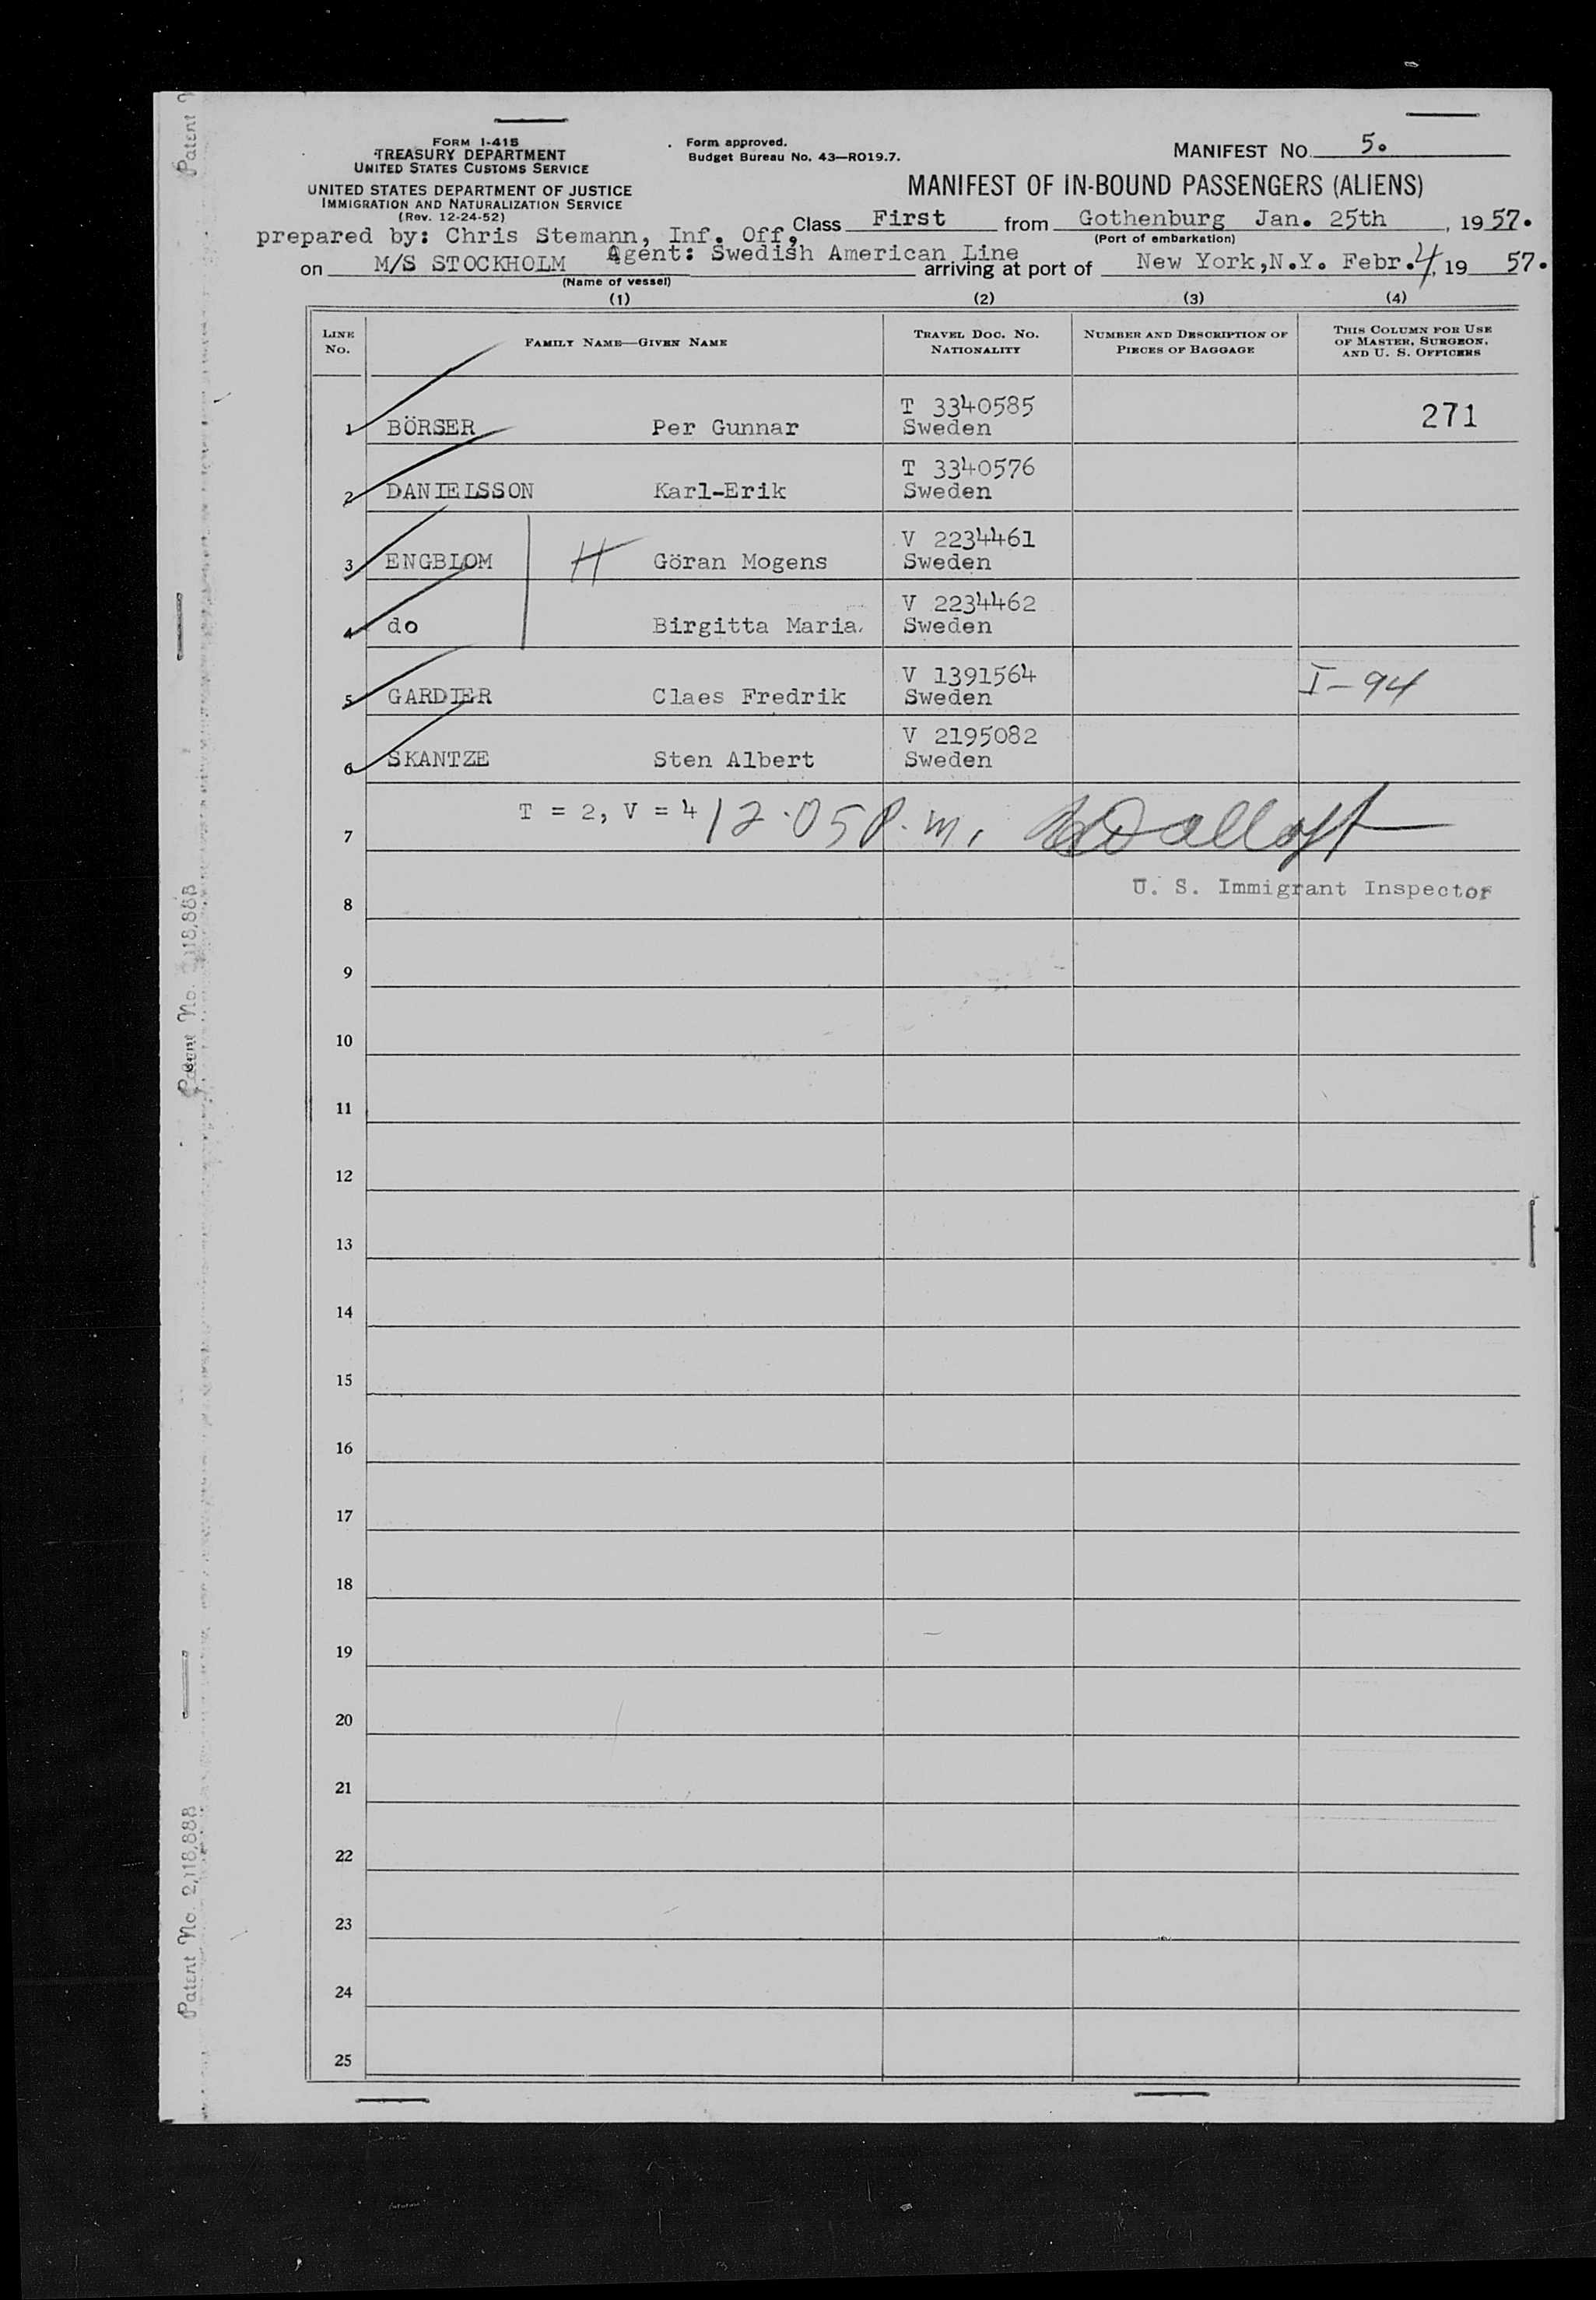 FORM I-415
TREASURY DEPARTMENT
UNITED STATES CUSTOMS SERVICE
UNITED STATES DEPARTMENT OF JUSTICE
IMMIGRATION AND NATURALIZATION SERVICE
(Rev. 12-24-52)
Form approved.
Budget Bureau No. 43—RO19.7.
MANIFEST NO. 5.
MANIFEST OF IN-BOUND PASSENGERS (ALIENS)
prepared by: Chris Stemann, Inf. Off, Class First from Gothenburg Jan. 25th, 1957.
(Port of embarkation)
Agent: Swedish American Line
on M/S STOCKHOLM arriving at port of New York, N.Y. Febr. 4, 19 57.
(Name of vessel)
(1) (2) (3) (4)
LINE NO. FAMILY NAME—GIVEN NAME TRAVEL DOC. NO. NATIONALITY NUMBER AND DESCRIPTION OF PIECES OF BAGGAGE THIS COLUMN FOR USE OF MASTER, SURGEON, AND U. S. OFFICERS
1 BÖRSER Per Gunnar T 3340585 Sweden 271
2 DANIELSSON Karl-Erik T 3340576 Sweden
3 ENGBLOM H Göran Mogens V 2234461 Sweden
4 do Birgitta Maria V 2234462 Sweden
5 GARDIER Claes Fredrik V 1391564 Sweden I-94
6 SKANTZE Sten Albert V 2195082 Sweden
T = 2, V = 4 12.05 P.m.
7
U. S. Immigrant Inspector
8
9
10
11
12
13
14
15
16
17
18
19
20
21
22
23
24
25
Patent No. 2,118,888
Patent No. 2,118,888
Patent